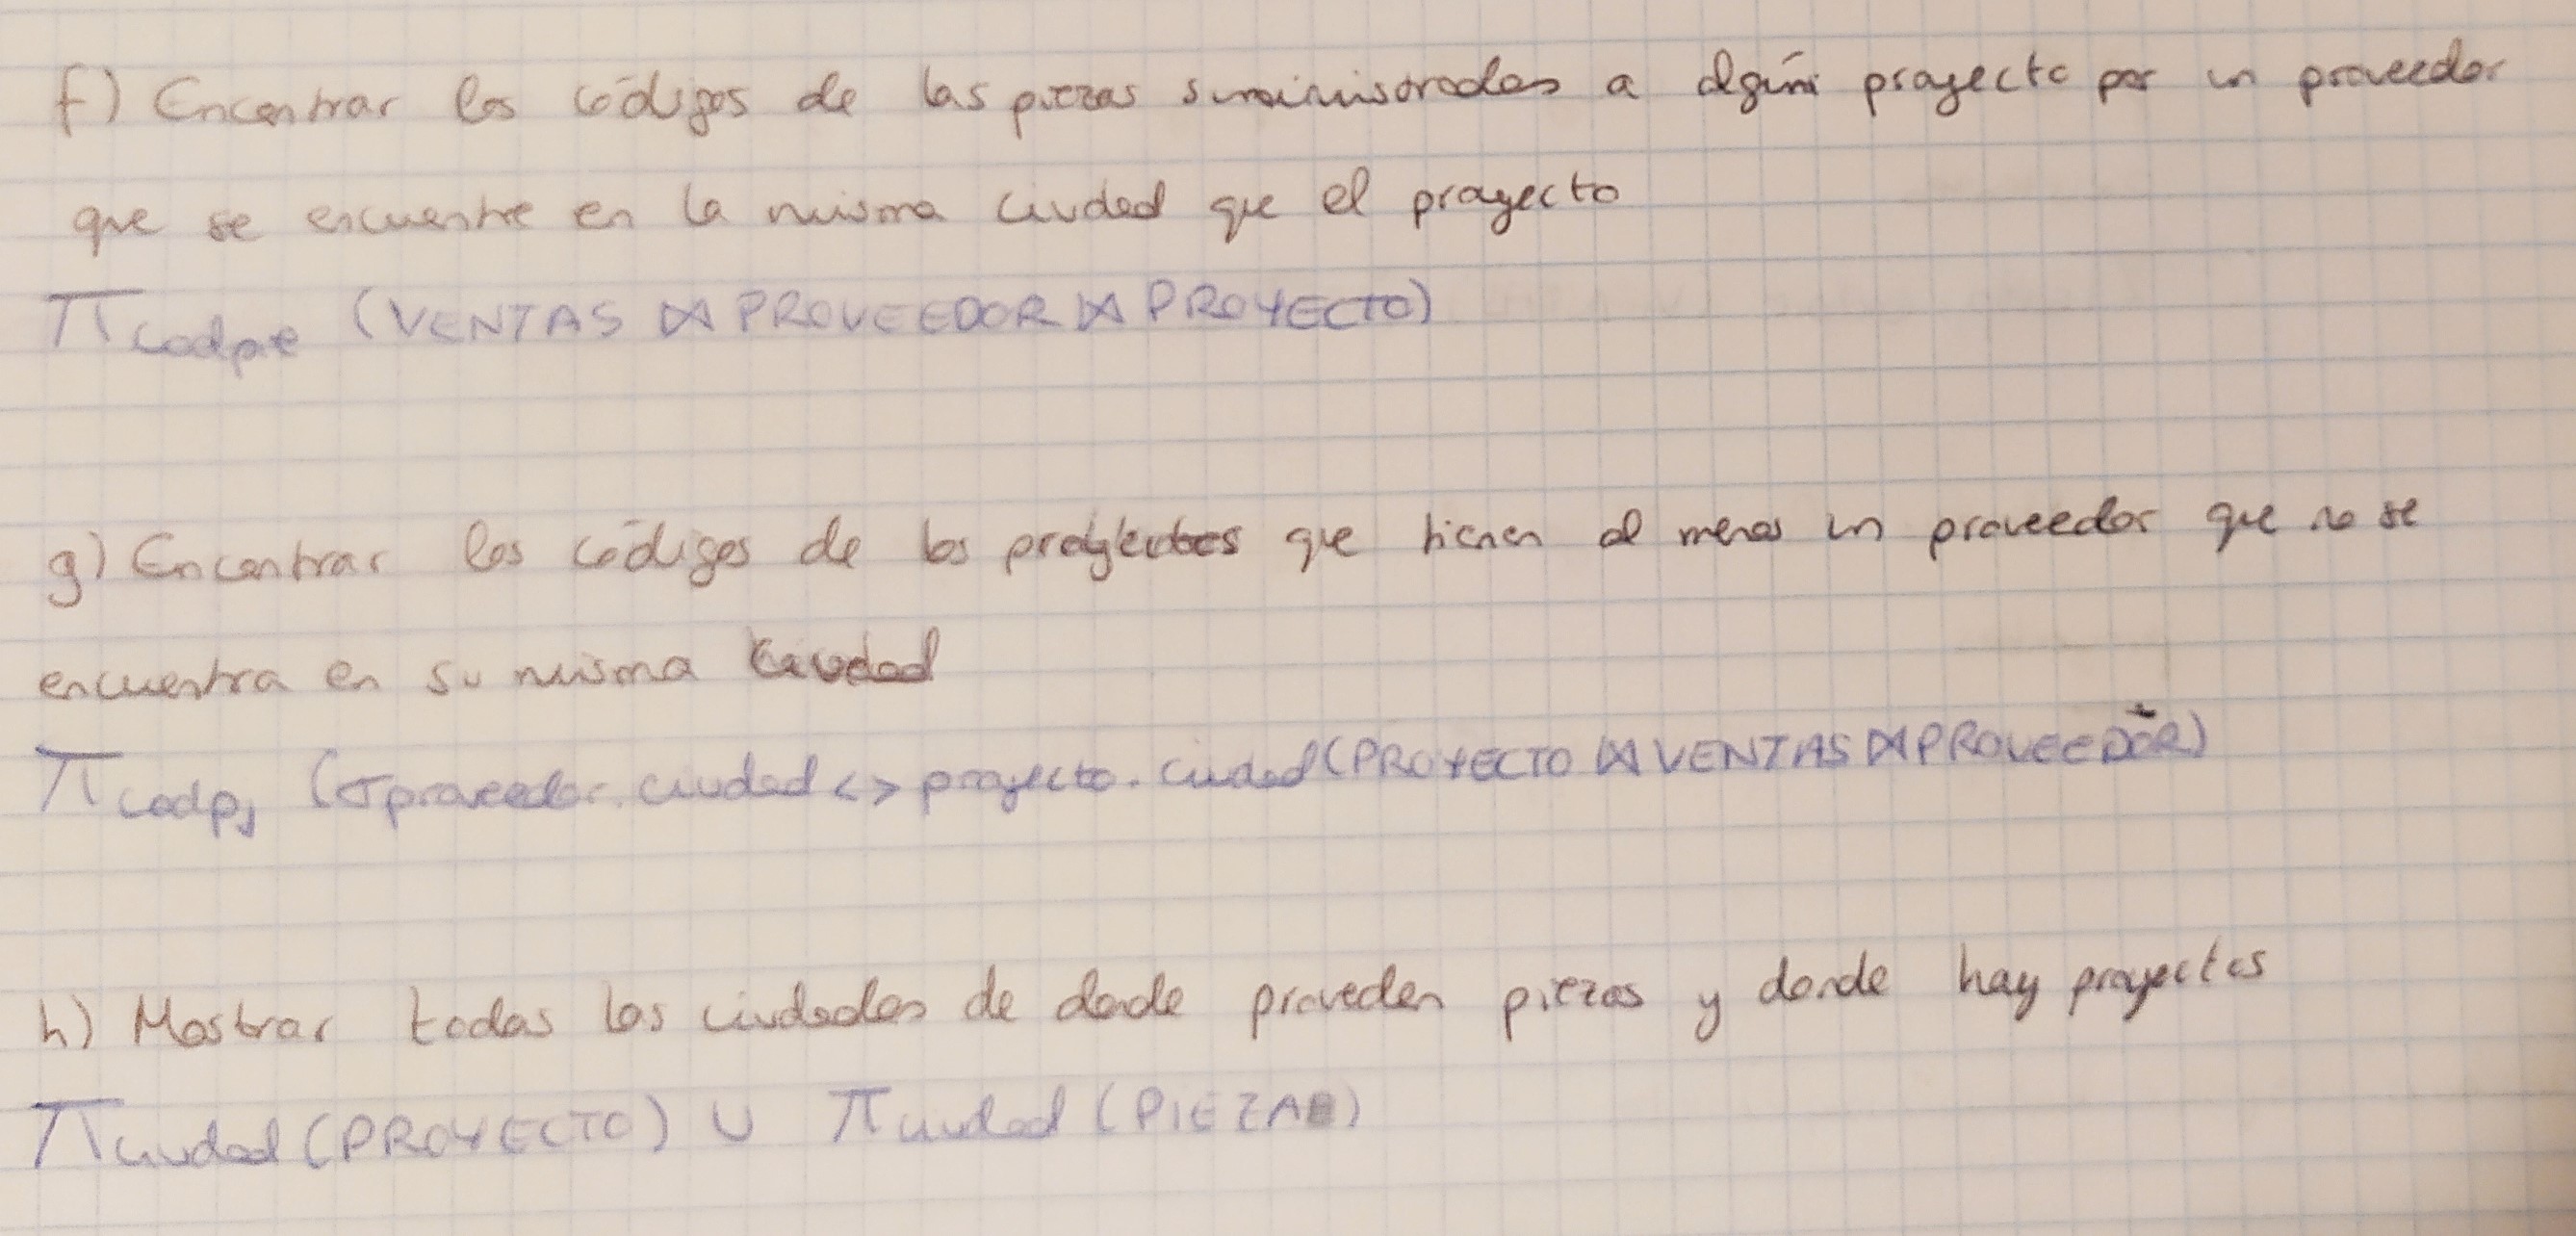 f) Encontrar los códigos de las piezas suministradas a algún proyecto por un proveedor
que se encuentre en la misma ciudad que el proyecto
π codpie (VENTAS ⋈ PROVEEDOR ⋈ PROYECTO)
g) Encontrar los códigos de los proyectos que tienen al menos un proveedor que no se
encuentra en su misma ciudad
π codpj (σ proveedor.ciudad <> proyecto.ciudad (PROYECTO ⋈ VENTAS ⋈ PROVEEDOR)
h) Mostrar todas las ciudades de donde proveden piezas y donde hay proyectos
π ciudad (PROYECTO) ∪ π ciudad (PIEZA)